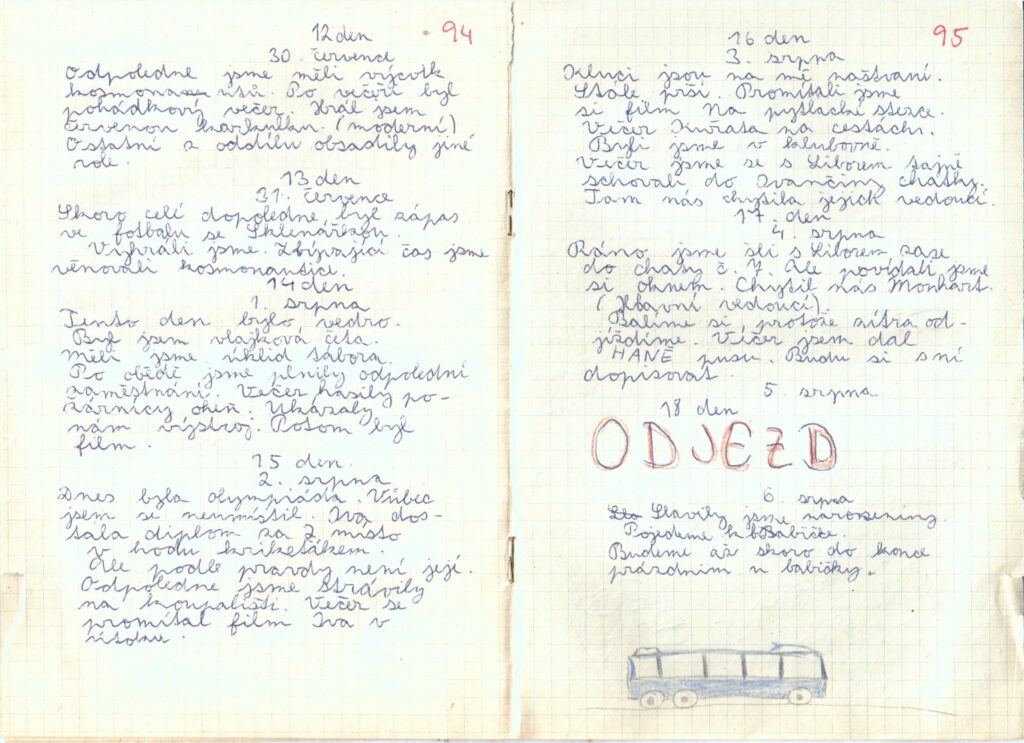 12 den
94
30. července
Odpoledne jsme měli výcvik
kosmonautů. Po večeři byl
pohádkový večer. Hrál jsem
červenou karkulku. (moderní)
Ostatní z oddílu obsadily jiné
role.
13 den
31. července
Skoro celé dopoledne byl zápas
ve fotbalu se Sklenářkou.
Vyhráli jsme. Zbívající čas jsme
věnovali kosmonautice.
14 den
1. srpna
Tento den bylo vedro.
Byl jsem vlajková četa.
Měli jsme úklid tábora.
Po obědě jsme plnily odpolední
zaměstnání. Večer hasily po-
žárnícy oheň. Ukázaly
nám výstroj. Potom byl
film.
15 den.
2. srpna
Dnes byla olympiáda. Vůbec
jsem se neumístil. Iva dos-
tala diplom za 2 místo
v hodu kriketákem.
Ale podle pravdy není její.
Odpoledne jsme strávily
na koupališti. Večer se
promítal film Iva v
útoku.
16 den
95
3. srpna
Kluci jsou na mě naštvaní.
Stále prší. Promítali jsme
si film Na pytlácké stezce.
Večer Kuřata na cestách.
Byli jsme v klubovně.
Večer jsme se s Liborem tajně
schovali do Ivančiny chatky.
Tam nás chytila jejich vedoucí.
17. den
4. srpna
Ráno jsme šli s Liborem zase
do chaty č. 7. Ale povídali jsme
si oknem. Chytil nás Monhart.
(Hlavní vedoucí).
Balíme si, protože zítra od-
jíždíme. Večer jsem dal
HANĚ pusu. Budu si s ní
dopisovat.
5. srpna
18 den
ODJEZD
6. srpna
Slavily jsme narozeniny.
Pojedeme k Babičce.
Budeme až skoro do konce
prázdnim u babičky.